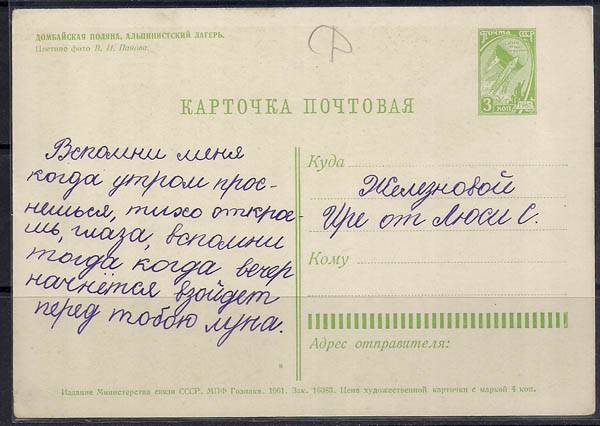 ДОМБАЙСКАЯ ПОЛЯНА, АЛЬПИНИСТСКИЙ ЛАГЕРЬ.
Цветное фото В. И. Панова.
ПОЧТА СССР
3 коп
КАРТОЧКА ПОЧТОВАЯ
Вспомни меня
когда утром прос-
нешься, тихо откро-
шь, глаза, вспомни
тогда когда вечер
начнётся взойдет
перед тоббю луна.
Куда
Железновой
Ире от Люси С.
Кому
Адрес отправителя:
Издание Министерства связи СССР. МПФ Гознака. 1961. Зак. 16363. Цена художественной карточки с маркой 4 коп.